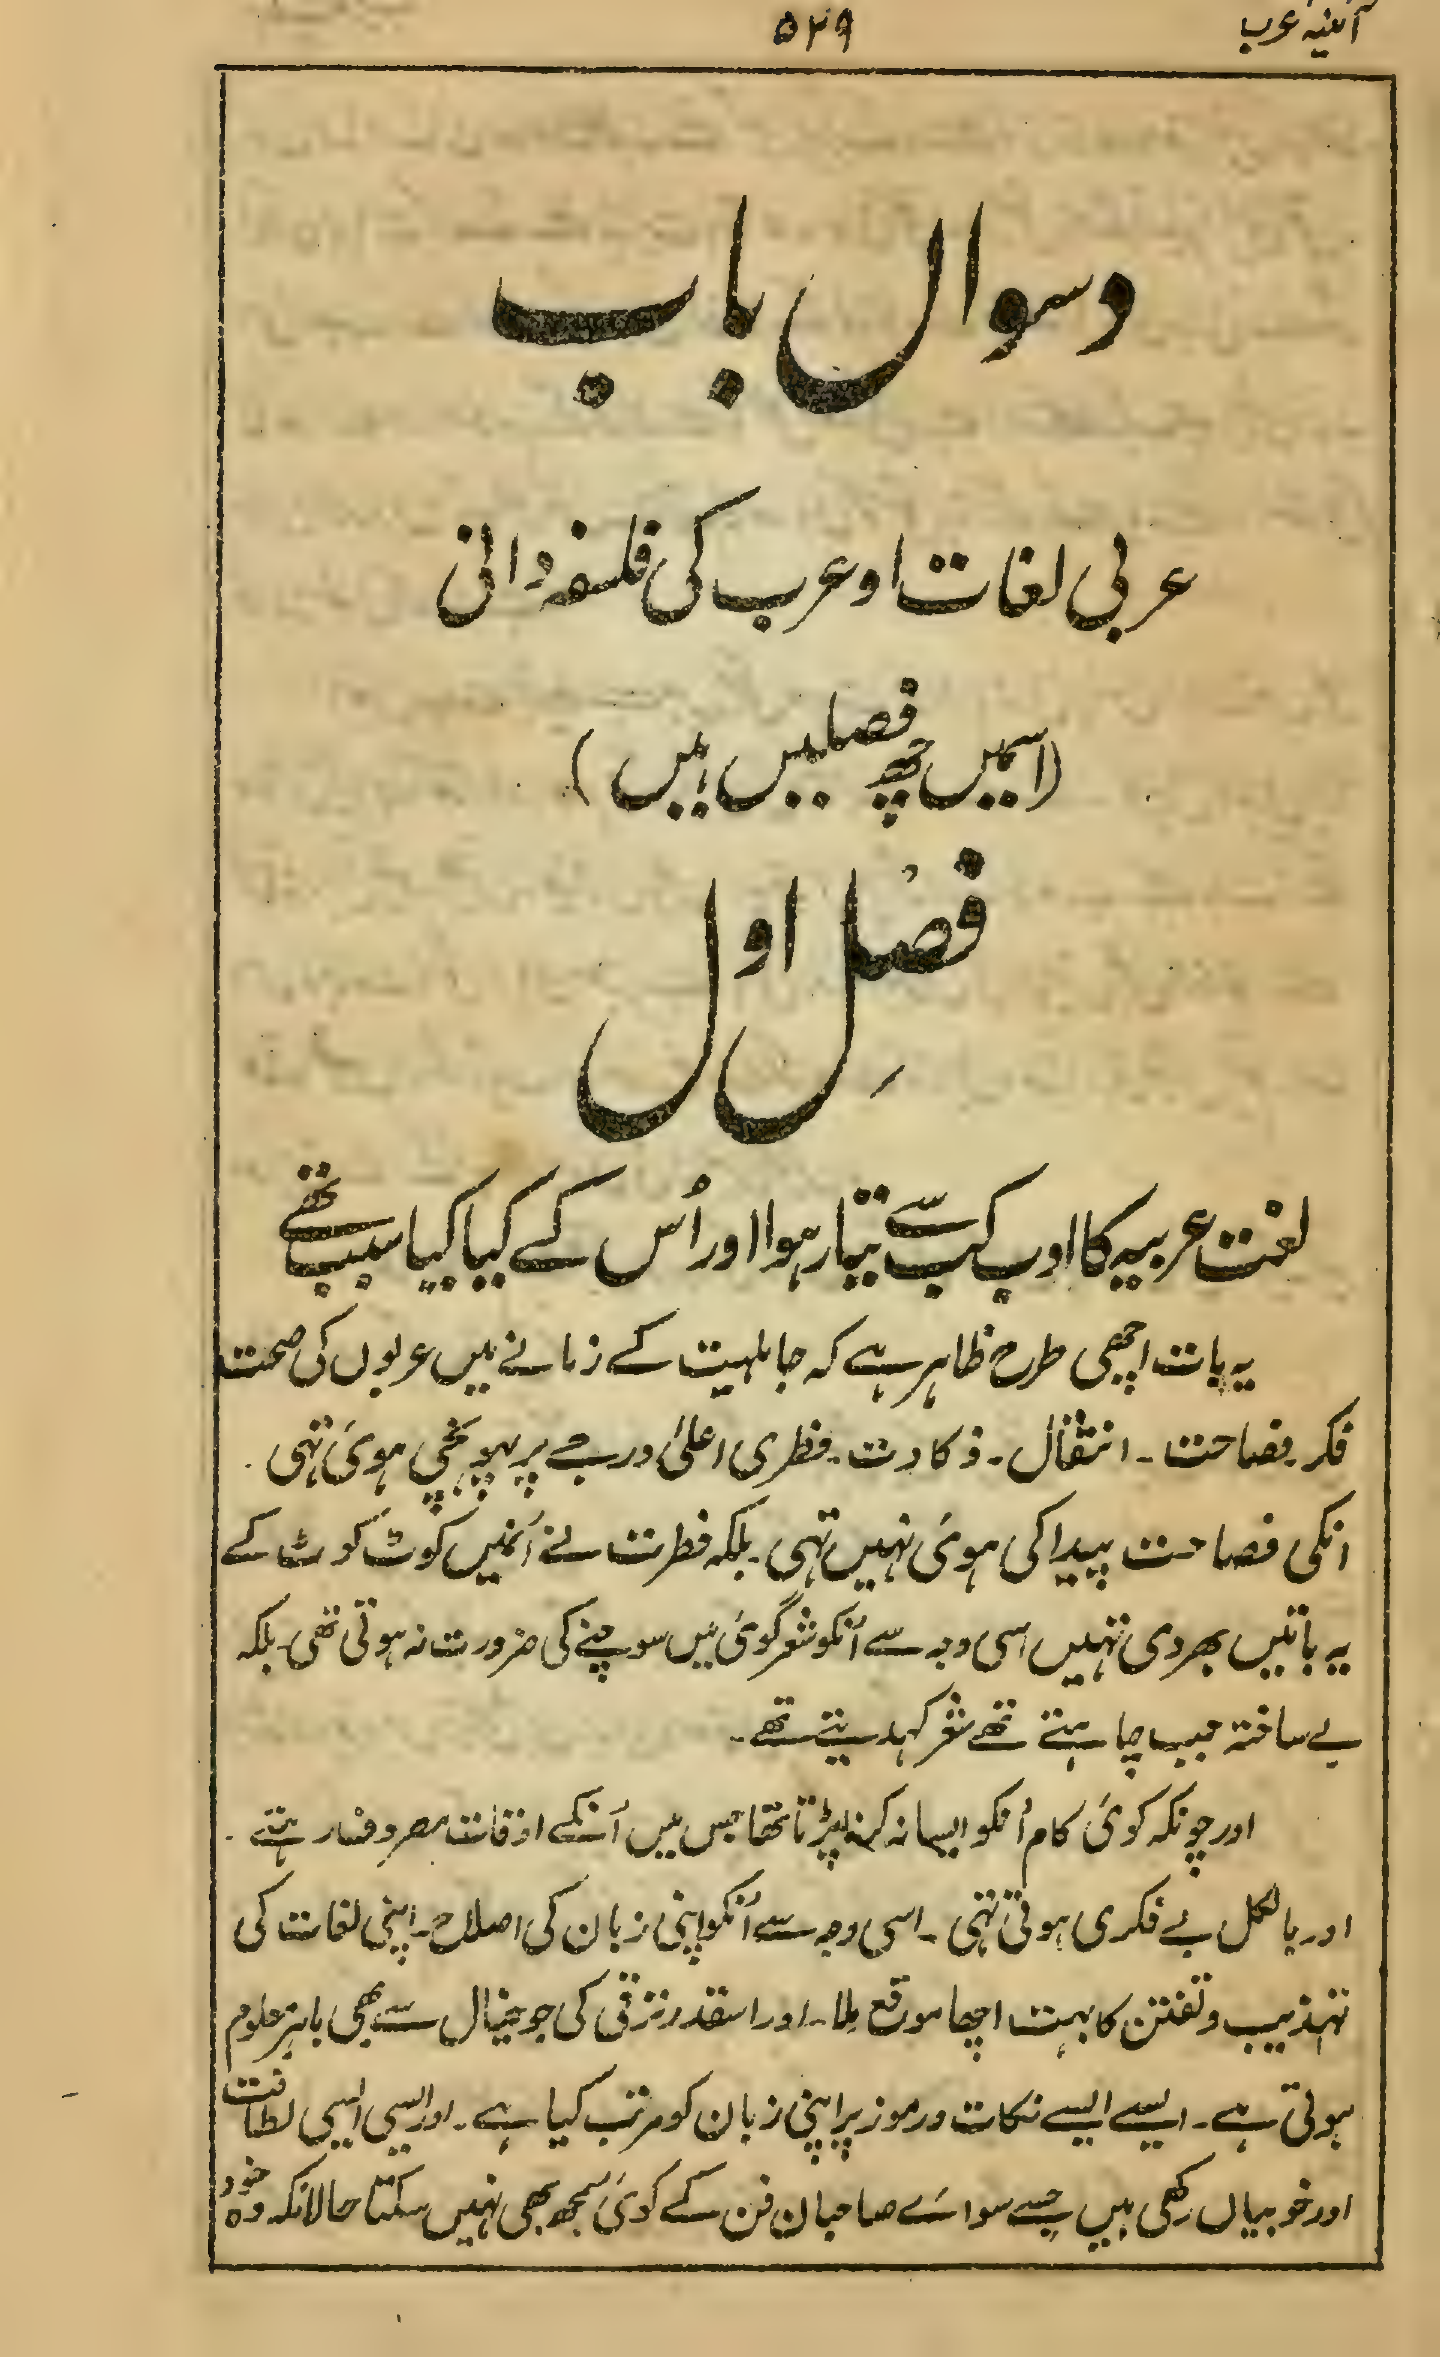 آئینہ عرب
۵۲۹
دسواں باب
عربی لغات او عرب کی فلسفہ دانی
(اسمیں چھ فصلیں ہیں)
فصلِ اول
لغت عربیہ کا ادب کب سے تیار ہوا اور اُس کے کیا کیا سبب تھے
یہ بات اچھی طرح ظاہر ہے کہ جاہلیت کے زمانے میں عربوں کی صحت
فکر۔ فصاحت ۔ انتقال ۔ ذکاوت ۔ فطری اعلیٰ درجے پر پہونچی ہوئی تہی .
انکی فصاحت پیدا کی ہوئی نہیں تہی ۔ بلکہ فطرت نے اُنمیں کوٹ کوٹ کے
یہ باتیں بھر دی تہیں اسی وجہ سے اُنکو شعر گوئی میں سوچنے کی ضرورت نہ ہوتی تھی ۔ بلکہ
بے ساختہ جب چاہتے تھے شعر کہدیتے تھے ۔
اور چونکہ کوئی کام اُنکو ایسا نہ کرنا پڑتا تھا جس میں اُنکے اوقات مصروف رہتے .
اور بالکل بے فکری ہوتی تہی ۔ اسی وجہ سے اُنکو اپنی زبان کی اصلاح ۔ اپنی لغات کی
تہذیب و تفنن کا بہت اچھا موقع ملا ۔ اور اسقدر ترقی کی جو خیال سے بھی باہر معلوم
ہوتی ہے ۔ ایسے ایسے نکات و رموز پر اپنی زبان کو مرتب کیا ہے ۔ اور ایسی ایسی لطافت
اور خوبیاں رکھی ہیں جسے سوائے صاحبان فن کے کوئی سمجھ بھی نہیں سکتا حالانکہ وہ خود